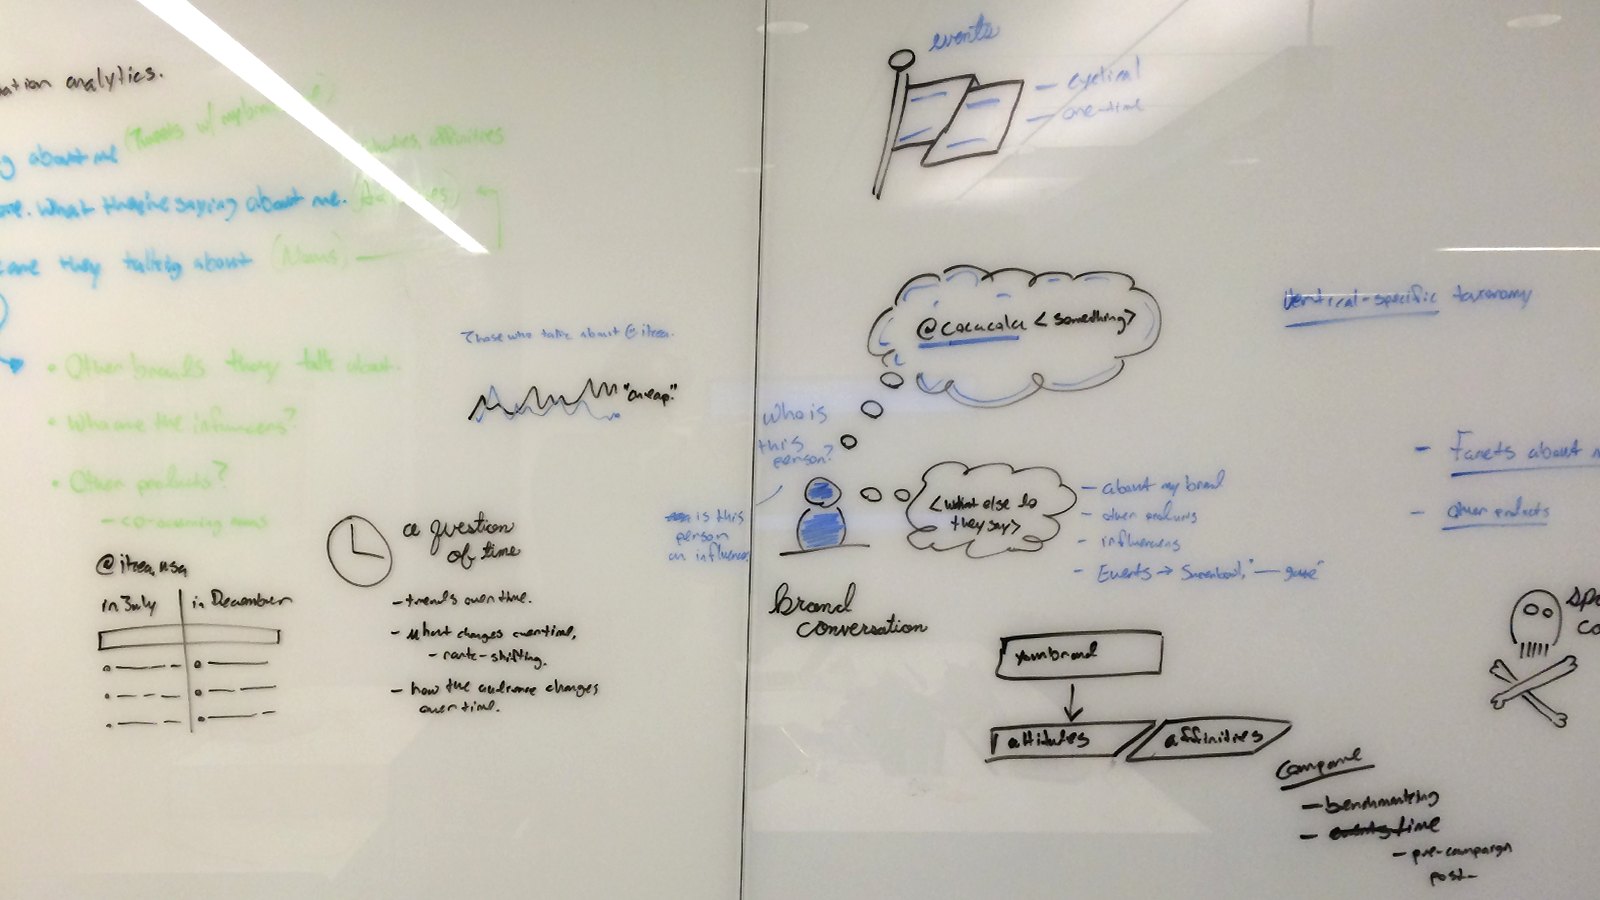 analytics.
(Tweets w/ my brand
about me
affinities
What they're saying about me.
are they talking about (Nouns)
• Other brands they talk about.
• Who are the influencers?
• Other products?
- co-occurring nouns
Those who talk about @ikea.
"cheap."
@ikea,usa
in July
in December
a question
of time
- trends over time.
- what changes over time,
- rank-shifting.
- how the audience changes
over time.
events
- cyclical
- one-time
@cocacola <something>
who is
this
person?
is this
person
an influencer
<what else do
they say>
- about my brand
- other products
- influencers
- Events → Superbowl,
Brand
conversation
your brand
attitudes
affinities
Vertical-specific taxonomy
- Facets about
- other products
Compare
- benchmarking
- time
- pre-campaign
post-